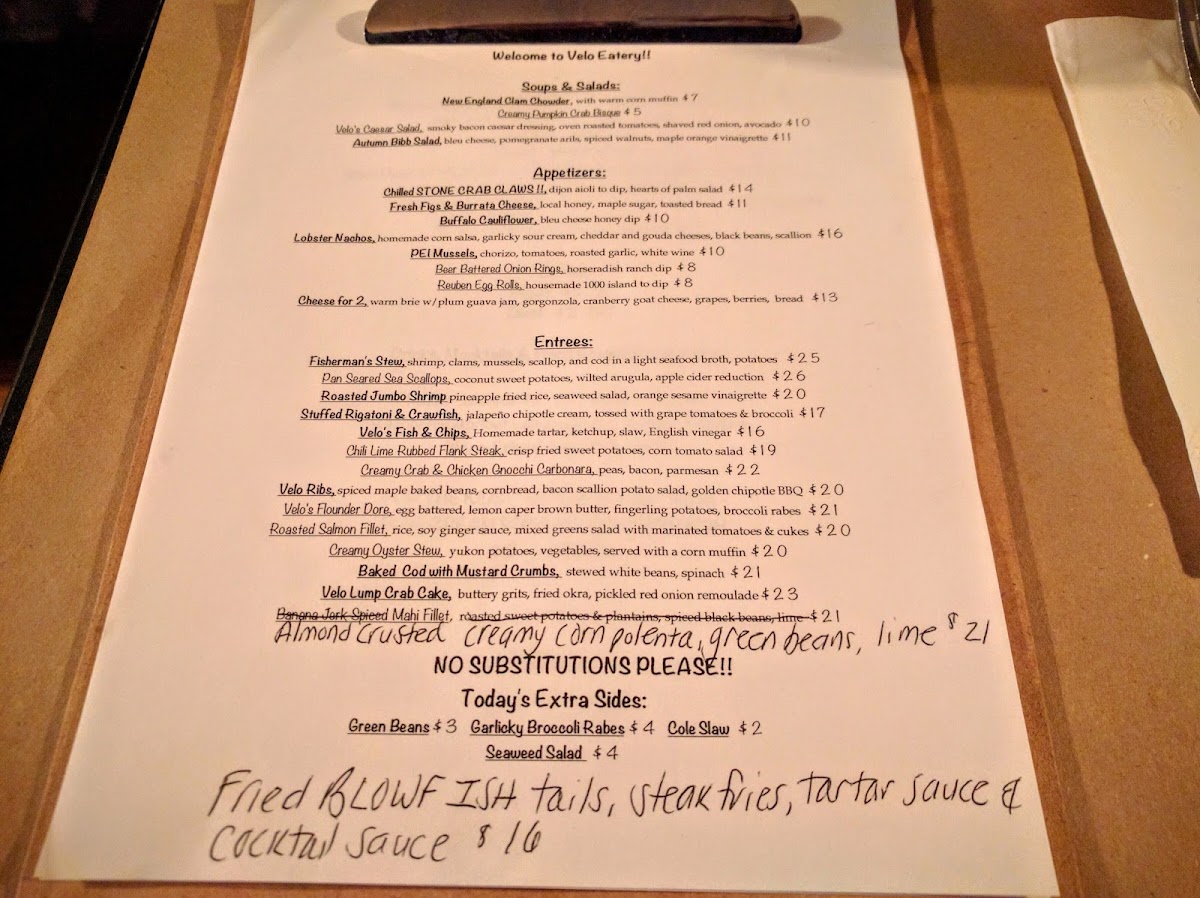 Welcome to Velo Eatery!!
Soups & Salads:
New England Clam Chowder, with warm corn muffin $7
Creamy Pumpkin Crab Bisque $5
Velo's Caesar Salad, smoky bacon caesar dressing, oven roasted tomatoes, shaved red onion, avocado $10
Autumn Bibb Salad, bleu cheese, pomegranate arils, spiced walnuts, maple orange vinaigrette $11
Appetizers:
Chilled STONE CRAB CLAWS!!, dijon aioli to dip, hearts of palm salad $14
Fresh Figs & Burrata Cheese, local honey, maple sugar, toasted bread $11
Buffalo Cauliflower, bleu cheese honey dip $10
Lobster Nachos, homemade corn salsa, garlicky sour cream, cheddar and gouda cheeses, black beans, scallion $16
PEI Mussels, chorizo, tomatoes, roasted garlic, white wine $10
Beer Battered Onion Rings, horseradish ranch dip $8
Reuben Egg Rolls, housemade 1000 island to dip $8
Cheese for 2, warm brie w/ plum guava jam, gorgonzola, cranberry goat cheese, grapes, berries, bread $13
Entrees:
Fisherman's Stew, shrimp, clams, mussels, scallop, and cod in a light seafood broth, potatoes $25
Pan Seared Sea Scallops, coconut sweet potatoes, wilted arugula, apple cider reduction $26
Roasted Jumbo Shrimp pineapple fried rice, seaweed salad, orange sesame vinaigrette $20
Stuffed Rigatoni & Crawfish, jalapeño chipotle cream, tossed with grape tomatoes & broccoli $17
Velo's Fish & Chips, Homemade tartar, ketchup, slaw, English vinegar $16
Chili Lime Rubbed Flank Steak, crisp fried sweet potatoes, corn tomato salad $19
Creamy Crab & Chicken Gnocchi Carbonara, peas, bacon, parmesan $22
Velo Ribs, spiced maple baked beans, cornbread, bacon scallion potato salad, golden chipotle BBQ $20
Velo's Flounder Dore, egg battered, lemon caper brown butter, fingerling potatoes, broccoli rabes $21
Roasted Salmon Fillet, rice, soy ginger sauce, mixed greens salad with marinated tomatoes & cukes $20
Creamy Oyster Stew, yukon potatoes, vegetables, served with a corn muffin $20
Baked Cod with Mustard Crumbs, stewed white beans, spinach $21
Velo Lump Crab Cake, buttery grits, fried okra, pickled red onion remoulade $23
Banana Jerk Spiced Mahi Fillet, roasted sweet potatoes & plantains, spiced black beans, lime $21
Almond Crusted creamy corn polenta, green beans, lime $21
NO SUBSTITUTIONS PLEASE!!
Today's Extra Sides:
Green Beans $3 Garlicky Broccoli Rabes $4 Cole Slaw $2
Seaweed Salad $4
Fried BLOWFISH tails, steak fries, tartar sauce &
cocktail sauce $16